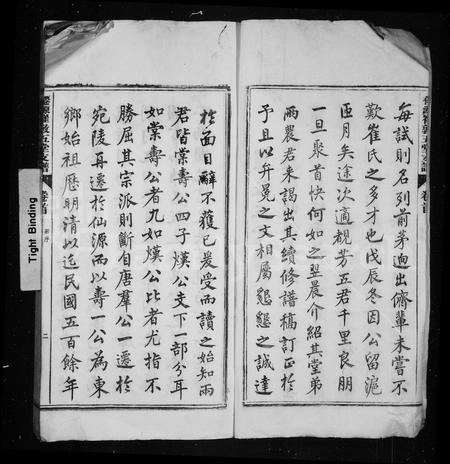 每試則名列前茅迥出儕輩未嘗不
歎崔氏之多才也戊辰冬因公留滬
匝月矣途次適覩芳五君千里良朋
一旦聚首快何如之翌晨介紹其堂弟
兩農君来謁出其續修譜稿訂正於
予且以弁冕之文相屬懇懇之誠達
於面目辭不獲已爰受而讀之始知兩
君皆棠壽公四子煐公支下一部分耳
如棠壽公者九如煐公比者尤指不
勝屈其宗派則斷自唐羣公一遷於
宛陵再遷於仙源而以壽一公為東
鄉始祖歷明清以迄民國五百餘年
卷首
二
卷首
Tight Binding